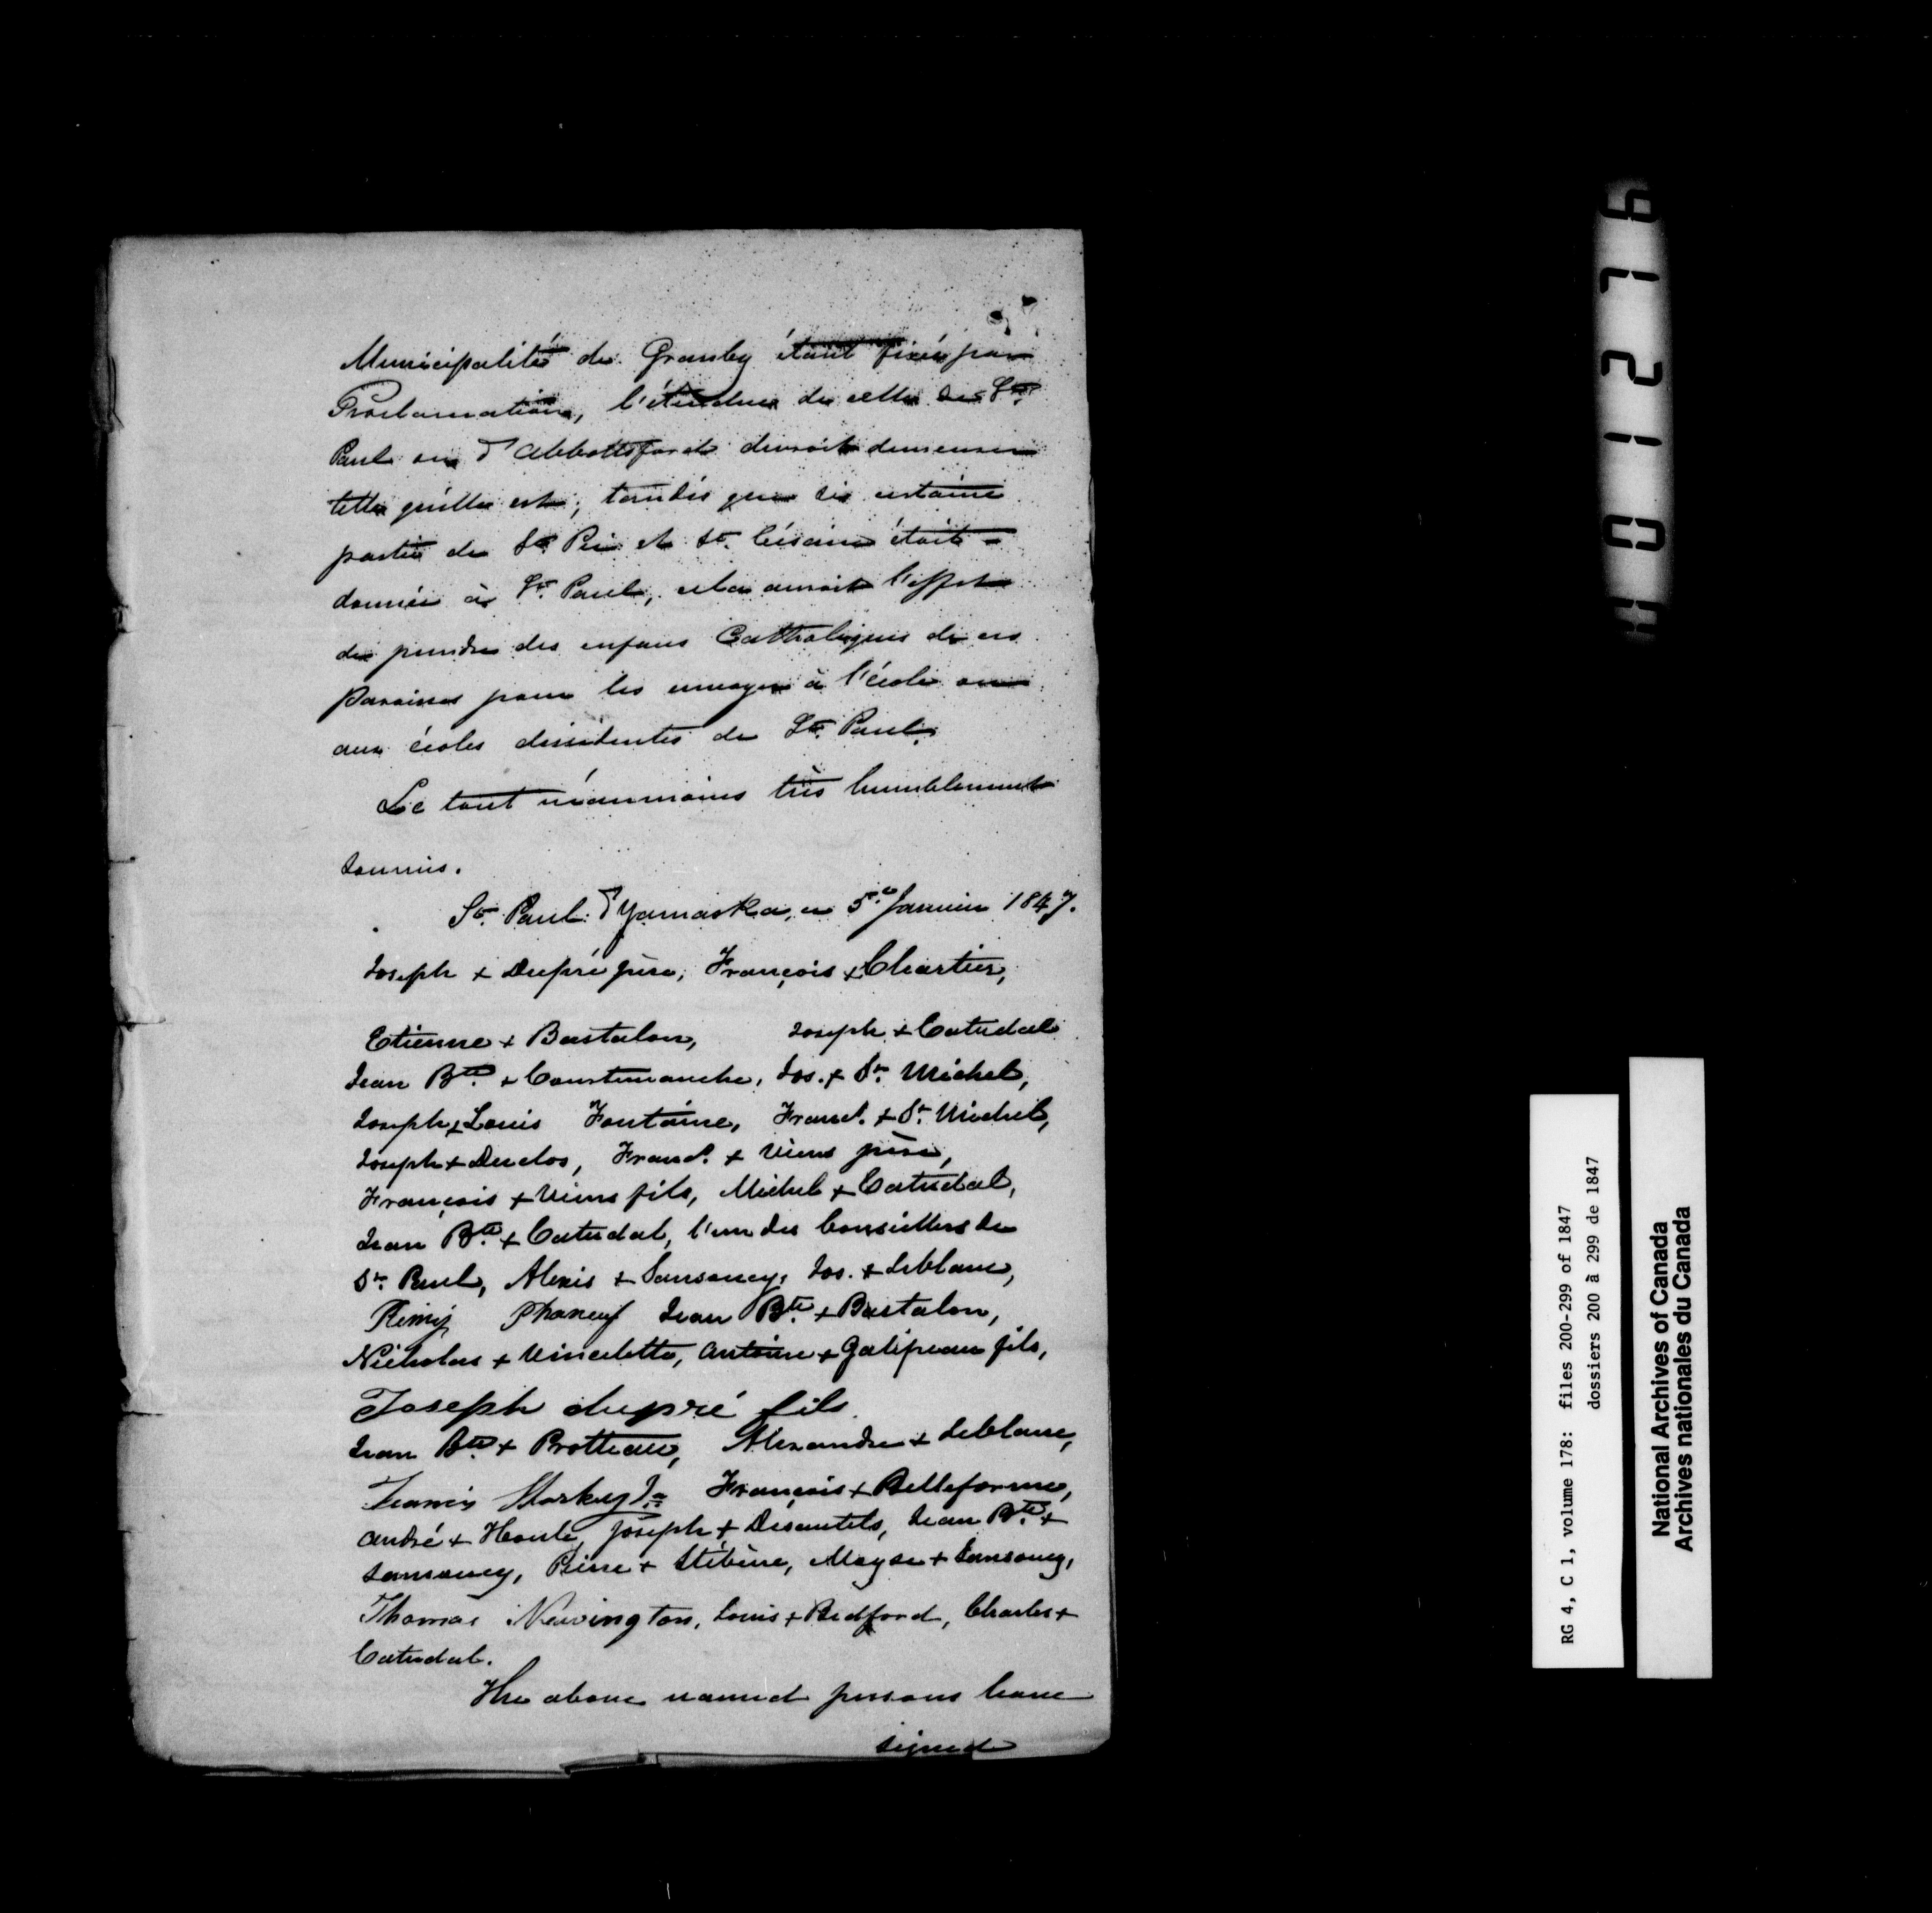 Municipalité de Granby étant fixée par
Proclamation, l'étendue de celle de St.
Paul ou d'Abbottsford devroit demeurer
telle qu'elle est; tandis que si certaine
partie de St. Pie et St. Césaire étoit
donnée à St. Paul, cela auroit l'effet
de prendre des enfans Catholiques de ces
Paroisses pour les envoyer à l'école ou
aux écoles dissidentes de St. Paul.
Le tout néanmoins très humblement
soumis.
St. Paul d'Yamaska, ce 5e. Janvier 1847.
Joseph + Dupré père, François + Chartier,
Etienne + Bastalon, Joseph + Catudal
Jean Bte. + Courtemanche, Jos. + St. Michel,
Joseph + Louis Fontaine, Francs. + St. Michel,
Joseph + Duclos, Francs. + Viens père,
François + Viens fils, Michel + Catudal,
Jean Bte. + Catudal, l'un des Conseillers de
St. Paul, Alexis + Sansoucy, Jos. + Leblanc,
Rémij Phaneuf Jean Bte. + Bastalon,
Nicholas + Vincelette, Antoine + Galipeau fils,
Joseph dupré fils
Jean Bte. + Protteau, Alexandre + Leblanc,
Francis Starkey François + Belleforme,
André + Houle, Joseph + Desautels, Jean Bte. +
Sansoucy, Pierre + Stébine, Moyse + Sansoucy,
Thomas Newington, Louis + Bedford, Charles +
Catudal.
The above named persons have
signed
001276
RG 4, C 1, volume 178: files 200-299 of 1847
dossiers 200 à 299 de 1847
National Archives of Canada
Archives nationales du Canada